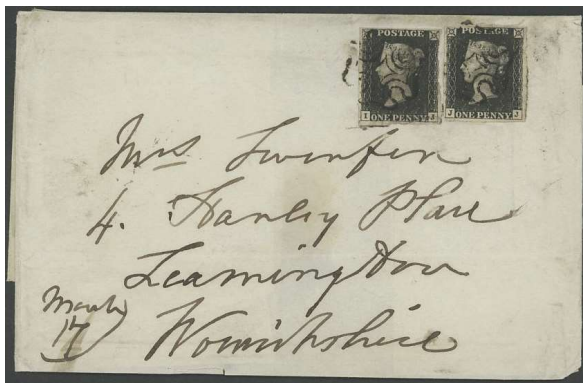 POSTAGE POSTAGE
I J J J
ONE PENNY ONE PENNY
Mrs Swinfen
4. Hanley Place
Leamington
Warwickshire
March
17